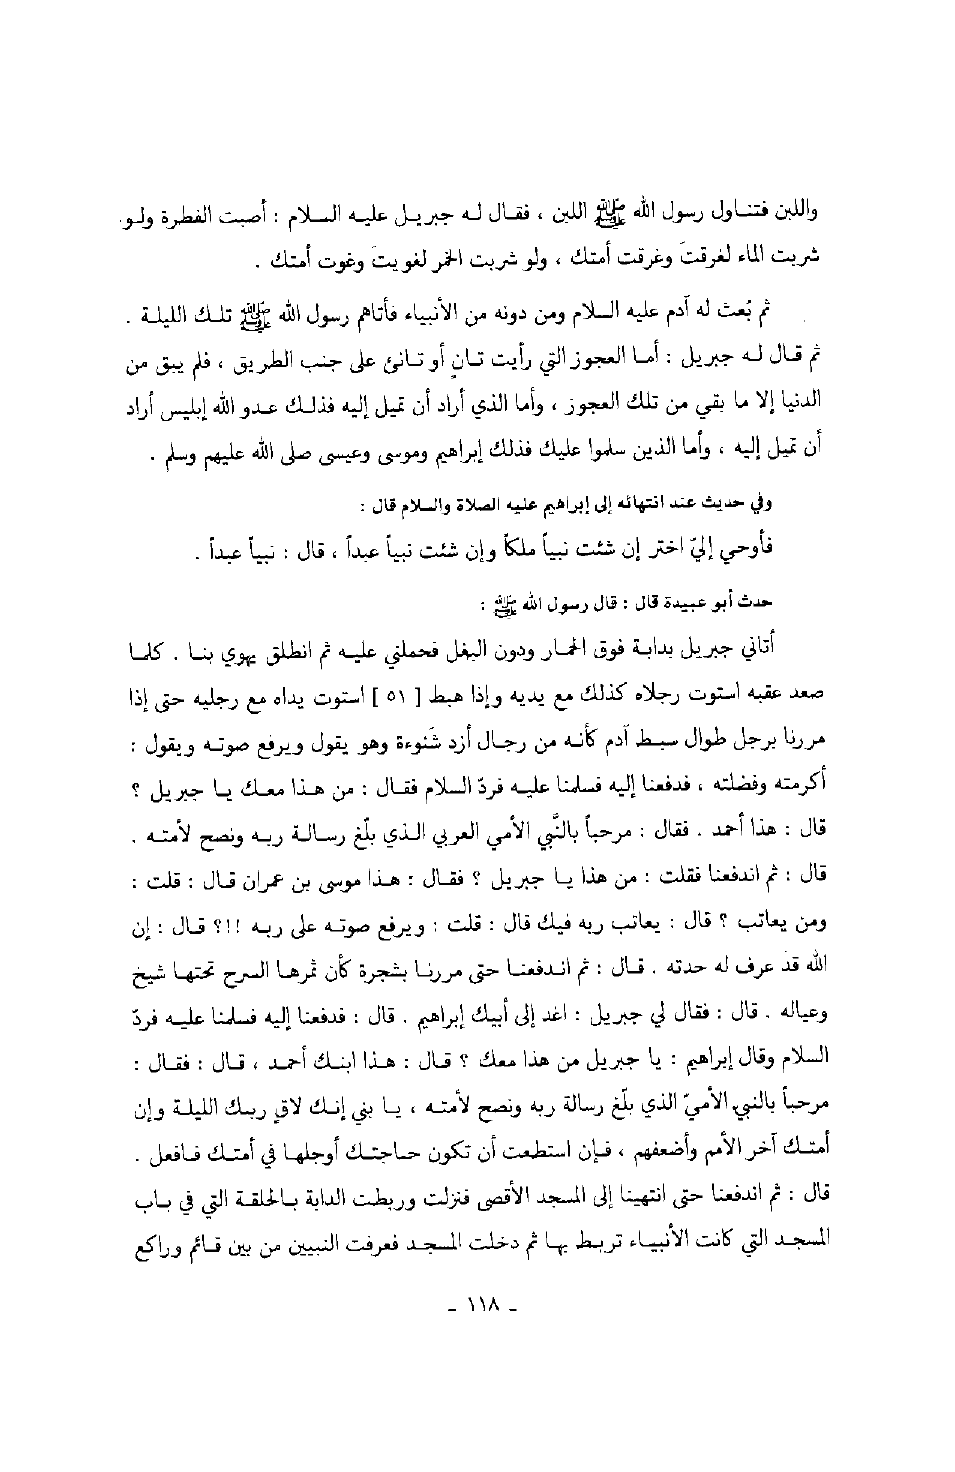 واللبن فتناول رسول الله ﷺ اللبن ، فقال له جبريل عليه السلام : أصبت الفطرة ولو
شربت الماء لغرقتَ وغرقت أمتك ، ولو شربت الخمر لغويتَ وغوت أمتك .
ثم بُعث له آدم عليه السلام ومن دونه من الأنبياء فأتاهم رسول الله ﷺ تلك الليلة .
ثم قال له جبريل : أما العجوز التي رأيت تانٍ أو تانئ على جنب الطريق ، فلم يبق من
الدنيا إلا ما بقي من تلك العجوز ، وأما الذي أراد أن تميل إليه فذلك عدو الله إبليس أراد
أن تميل إليه ، وأما الذين سلموا عليك فذلك إبراهيم وموسى وعيسى صلى الله عليهم وسلم .
وفي حديث عند انتهائه إلى إبراهيم عليه الصلاة والسلام قال :
فأوحي إليّ اختر إن شئت نبياً ملكاً وإن شئت نبياً عبداً ، قال : نبياً عبداً .
حدث أبو عبيدة قال : قال رسول الله ﷺ :
أتاني جبريل بدابة فوق الحمار ودون البغل فحملني عليه ثم انطلق يهوي بنا . كلما
صعد عقبه استوت رجلاه كذلك مع يديه وإذا هبط [ ٥١ ] استوت يداه مع رجليه حتى إذا
مررنا برجل طوال سبط آدم كأنه من رجال أزد شَنُوءة وهو يقول ويرفع صوته ويقول :
أكرمته وفضلته ، فدفعنا إليه فسلمنا عليه فردّ السلام فقال : من هذا معك يا جبريل ؟
قال : هذا أحمد . فقال : مرحباً بالنَّبي الأمي العربي الذي بلّغ رسالة ربه ونصح لأمته .
قال : ثم اندفعنا فقلت : من هذا يا جبريل ؟ فقال : هذا موسى بن عمران قال : قلت :
ومن يعاتب ؟ قال : يعاتب ربه فيك قال : قلت : ويرفع صوته على ربه !!؟ قال : إن
الله قد عرف له حدته . قال : ثم اندفعنا حتى مررنا بشجرة كأن ثمرها السرح تحتها شيخ
وعياله . قال : فقال لي جبريل : اغد إلى أبيك إبراهيم . قال : فدفعنا إليه فسلمنا عليه فردّ
السلام وقال إبراهيم : يا جبريل من هذا معك ؟ قال : هذا ابنك أحمد ، قال : فقال :
مرحباً بالنبي الأميّ الذي بلّغ رسالة ربه ونصح لأمته ، يا بني إنك لاقٍ ربك الليلة وإن
أمتك آخر الأمم وأضعفهم ، فإن استطعت أن تكون حاجتك أوجلها في أمتك فافعل .
قال : ثم اندفعنا حتى انتهينا إلى المسجد الأقصى فنزلت وربطت الدابة بالحلقة التي في باب
المسجد التي كانت الأنبياء تربط بها ثم دخلت المسجد فعرفت النبيين من بين قائم وراكع
- ١١٨ -